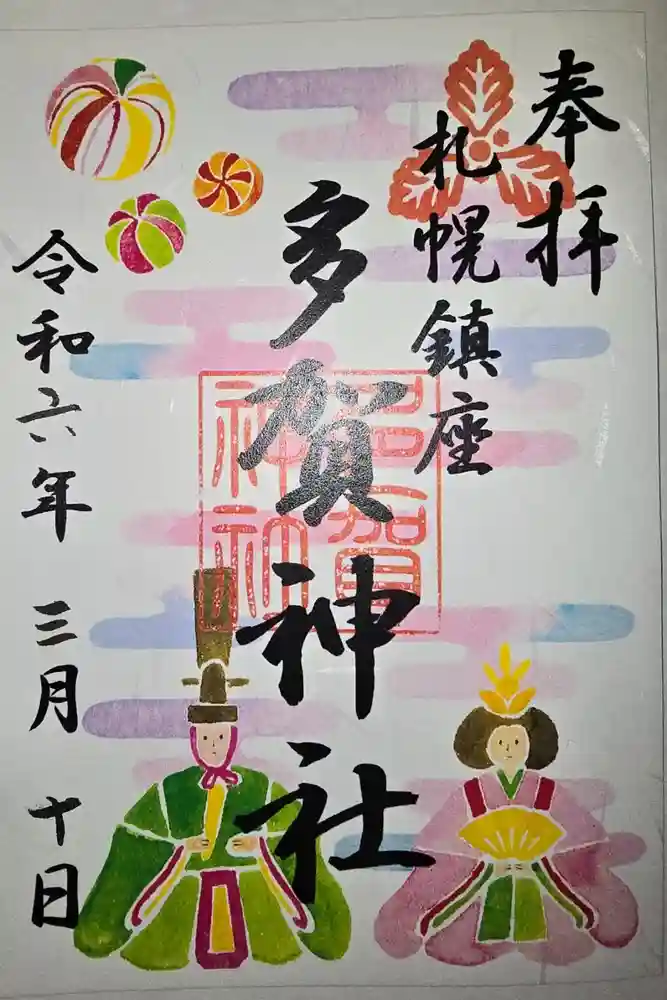 奉拝
札幌鎮座
多賀神社
多賀
神社
令和六年 三月 十日